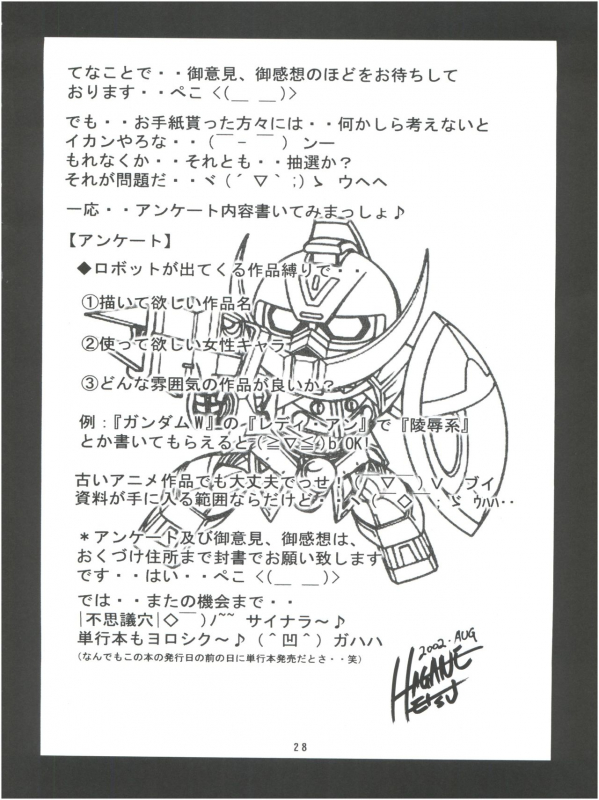 てなことで・・御意見、御感想のほどをお待ちして
おります・・ぺこ <(＿ ＿)>
でも・・お手紙貰った方々には・・何かしら考えないと
イカンやろな・・(￣ - ￣) ンー
もれなくか・・それとも・・抽選か？
それが問題だ・・ヾ(´ ▽｀;)ゝ ウヘヘ
一応・・アンケート内容書いてみまっしょ♪
【アンケート】
◆ロボットが出てくる作品縛りで・・
①描いて欲しい作品名
②使って欲しい女性キャラ
③どんな雰囲気の作品が良いか？
例：『ガンダムW』の『レディ・アン』で『陵辱系』
とか書いてもらえると(≧▽≦)b OK!
古いアニメ作品でも大丈夫でっせ！(￣▽￣)V ブイ
資料が手に入る範囲ならだけど・・ヽ(￣◇￣;ゞ ｳﾊﾊ・・
＊アンケート及び御意見、御感想は、
おくづけ住所まで封書でお願い致します
です・・はい・・ぺこ <(＿ ＿)>
では・・またの機会まで・・
|不思議穴|◇￣)ﾉ~~ サイナラ〜♪
単行本もヨロシク〜♪(＾凹＾)ガハハ
(なんでもこの本の発行日の前の日に単行本発売だとさ・・笑)
2002. AUG
HAGANE
TETSU
28